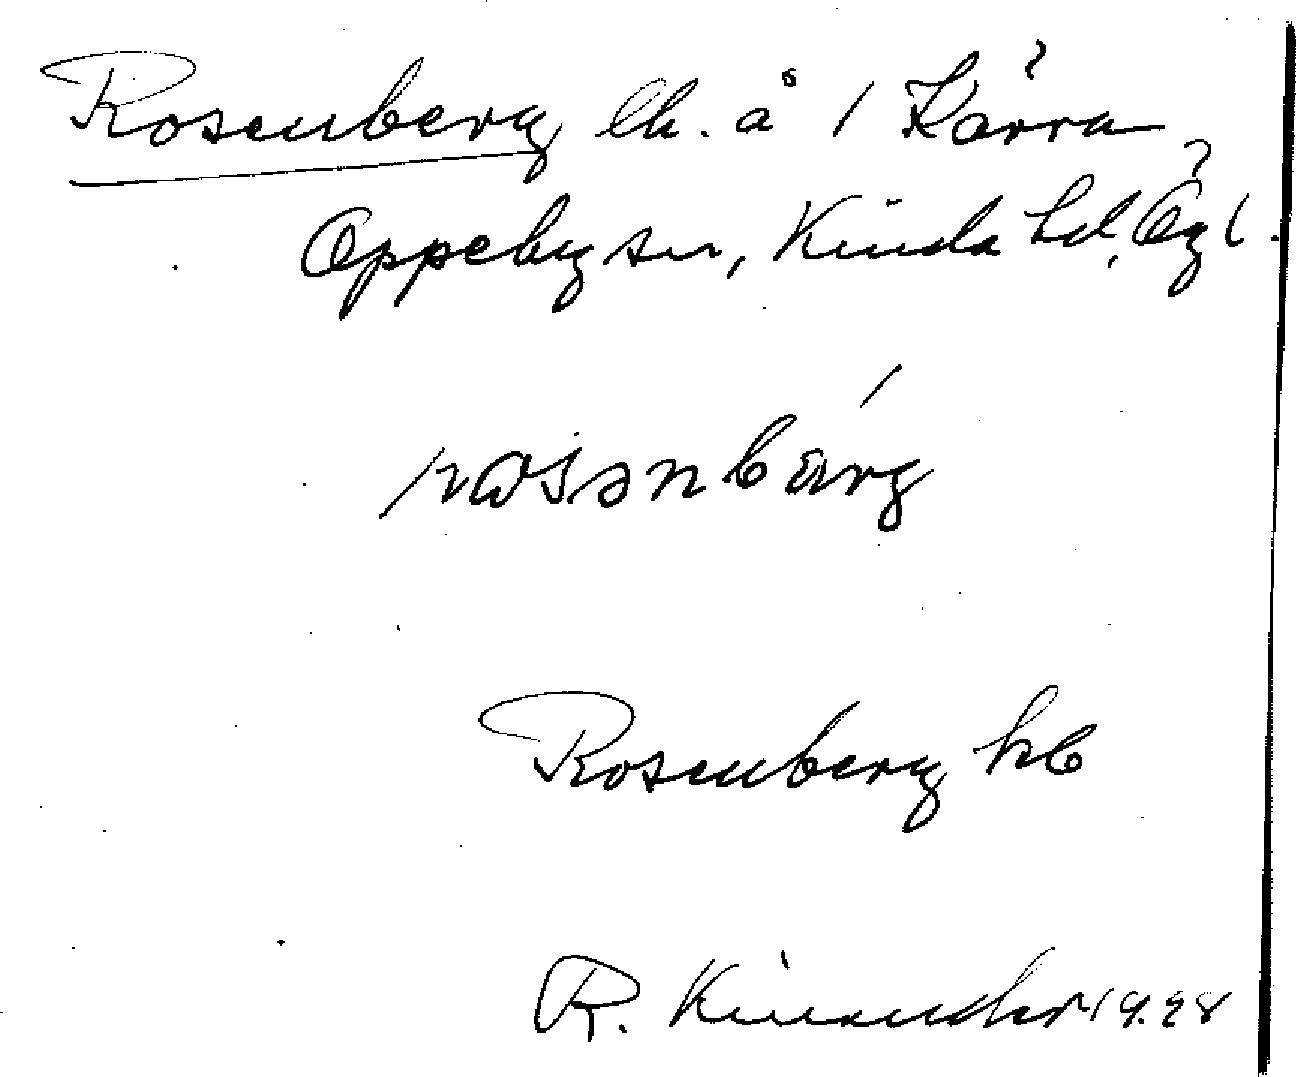 Rosenberg lh. å 1 Kärra
Oppeby sn, Kinda hd, Ögl.
Rosenberg hb
R. Kinander 1928